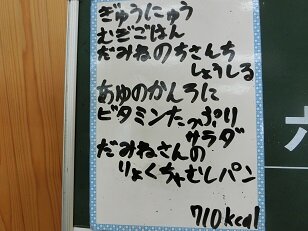 ぎゅうにゅう
むぎごはん
だみねのちさんち
しょうしる
あゆのかんろに
ビタミンたっぷり
サラダ
だみねさんの
りょくちゃむしパン
710kcal